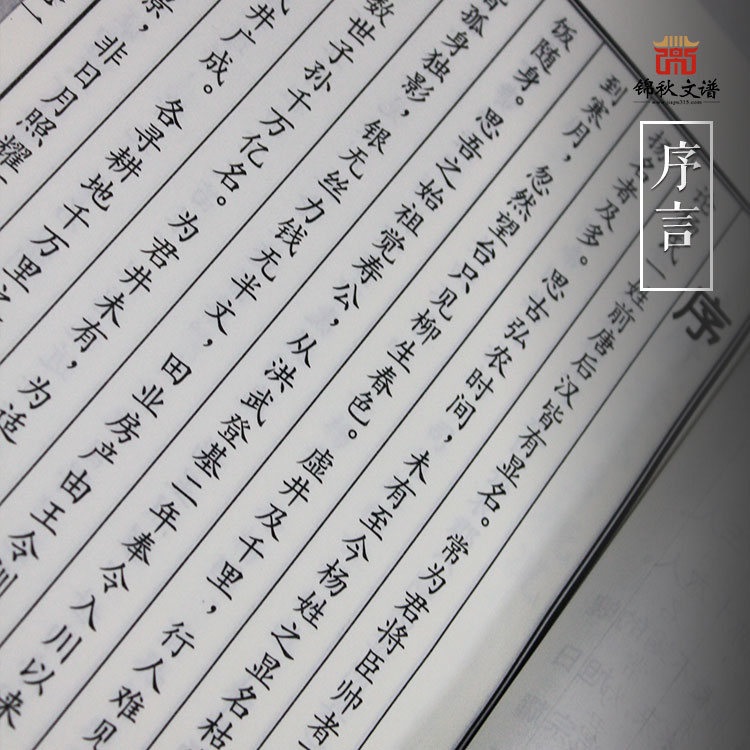 锦秋文谱
www.pupu315.com
序言
序
一姓前唐后汉皆有显名。常为君将臣帅者
名者及多。思古弘农时间，未有至今杨姓之显名枯
到寒月，忽然望台只见柳生春色。虚井及千里，行人难见
饭随身。思吾之始祖觉寿公，从洪武登基二年奉令入川以来
孤身独影，银无丝力钱无半文，田业房产由王令
数世子孙千万亿名。为君井未有，为适
井广成。各寻耕地千万里之
景，非日月照耀